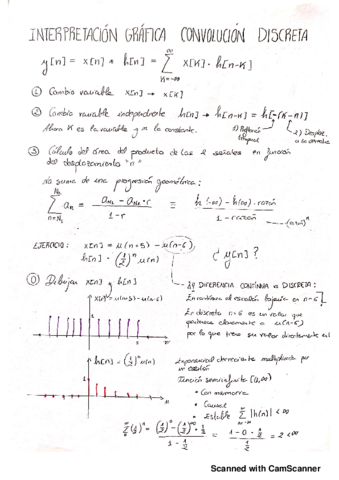 INTERPRETACIÓN GRÁFICA CONVOLUCIÓN DISCRETA
y[n] = x[n] * h[n] = ∞ Σ K=-∞ x[K] · h[n-K]
① Cambio variable x[n] → x[K]
② Cambio variable independiente h[n] → h[n-K] = h[-(K-n)]
Ahora K es la variable y n la constante.
1) Reflexión
2) Desplaz. a la derecha
③ Cálculo del área del producto de las 2 señales en función
del desplazamiento "n"
La suma de una progresión geométrica:
N2 Σ n=N1 an = aN1 - aN2·r / 1-r = - h(∞)·razón / 1-razón
EJERCICIO: x[n] = u(n+5) - u(n-6)
h[n] = (1/2)^n u(n)
¿ y[n] ?
⓪ Dibujar x[n] y h[n]
x[n] = u(n+5) - u(n-6)
DIFERENCIA CONTINUA vs DISCRETA:
En continua el escalón bajaría en n=6
En discreta n=6 es un valor que
pertenece claramente a u(n-6)
por lo que tiene su valor directamente
n
h[n] = (1/2)^n u(n)
Exponencial decreciente multiplicada por
un escalón
Función semiinfinita [0,∞)
• Con memoria
• Causal
• Estable Σ |h[n]| < ∞
∞ Σ 0 (1/2)^n = (1/2)^0 - (1/2)^∞ · 1/2 / 1 - 1/2 = 1 - 0 · 1/2 / 1 - 1/2 = 2 < ∞
Scanned with CamScanner